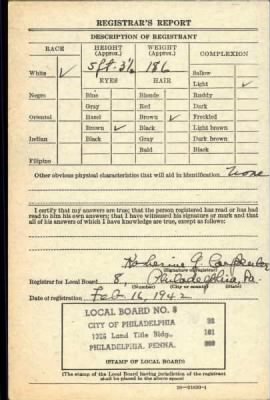 REGISTRAR'S REPORT
DESCRIPTION OF REGISTRANT
RACE HEIGHT (Approx.) WEIGHT (Approx.) COMPLEXION
5 ft. 3½ 186
White ✓ EYES HAIR Sallow
Light ✓
Negro Blue Blonde Ruddy
Gray Red Dark
Oriental Hazel Brown ✓ Freckled
Brown ✓ Black Light brown
Indian Black Gray Dark brown
Bald Black
Filipino
Other obvious physical characteristics that will aid in identification None
I certify that my answers are true; that the person registered has read or has had
read to him his own answers; that I have witnessed his signature or mark and that
all of his answers of which I have knowledge are true, except as follows:
Katherine G. Carpenter
(Signature of registrar)
Registrar for Local Board 8, Philadelphia, Pa.
(Number) (City or county) (State)
Date of registration Feb. 16, 1942
LOCAL BOARD NO. 8
CITY OF PHILADELPHIA
1326 Land Title Bldg.,
PHILADELPHIA, PENNA.
(STAMP OF LOCAL BOARD)
(The stamp of the Local Board having jurisdiction of the registrant
shall be placed in the above space)